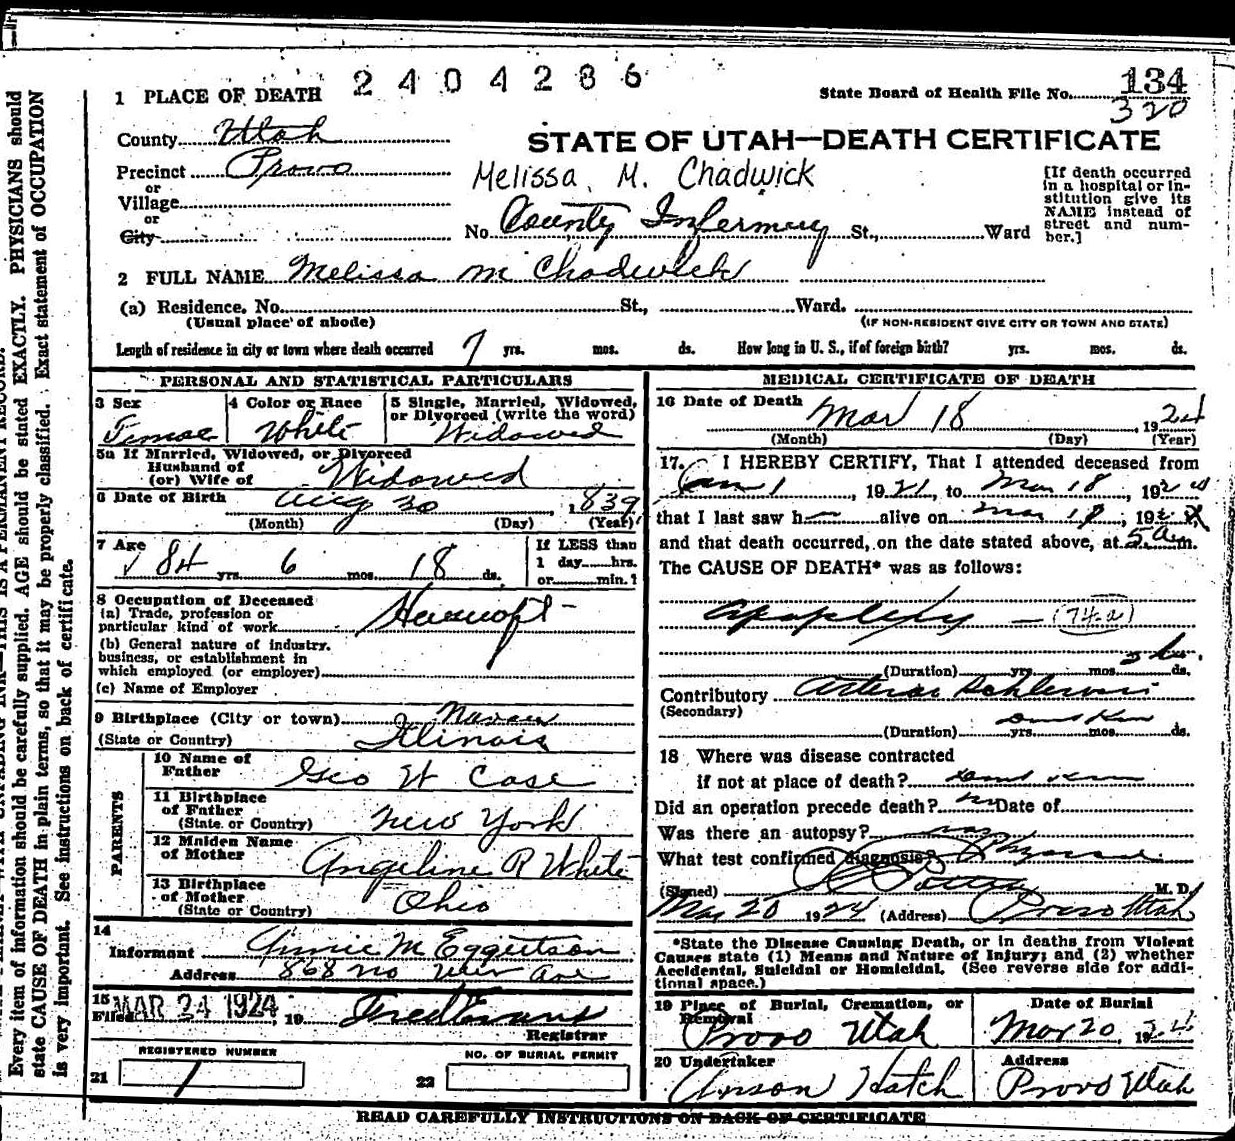 2404286
134
1 PLACE OF DEATH
State Board of Health File No.
320
County Utah
STATE OF UTAH—DEATH CERTIFICATE
Precinct Provo
Melissa M. Chadwick
[If death occurred in a hospital or institution give its NAME instead of street and number.]
or
Village
or
City
No County Infermery St., Ward
2 FULL NAME Melissa M Chadwick
(a) Residence. No. St., Ward.
(Usual place of abode)
(IF NON-RESIDENT GIVE CITY OR TOWN AND STATE)
Length of residence in city or town where death occurred 7 yrs. mos. ds. How long in U. S., if of foreign birth? yrs. mos. ds.
PERSONAL AND STATISTICAL PARTICULARS
3 Sex
Female
4 Color or Race
White
5 Single, Married, Widowed,
or Divorced (write the word)
Widowed
5a If Married, Widowed, or Divorced
Husband of
(or) Wife of Widowed
6 Date of Birth Aug 30, 1839
(Month) (Day) (Year)
7 Age
84 yrs. 6 mos. 18 ds.
If LESS than
1 day hrs.
or min.?
8 Occupation of Deceased
(a) Trade, profession or
particular kind of work
(b) General nature of industry,
business, or establishment in
which employed (or employer)
(c) Name of Employer
9 Birthplace (City or town)
(State or Country) Illinois
PARENTS
10 Name of
Father Geo W Case
11 Birthplace
of Father
(State or Country) New York
12 Maiden Name
of Mother Angeline R White
13 Birthplace
of Mother
(State or Country) Ohio
14
Informant Annie M Eggertson
Address 868 no Univ Ave
15
Filed MAR 24 1924, 19 Fred Evans
Registrar
REGISTERED NUMBER
21 1
NO. OF BURIAL PERMIT
22
MEDICAL CERTIFICATE OF DEATH
16 Date of Death
Mar 18, 1924
(Month) (Day) (Year)
17. I HEREBY CERTIFY, That I attended deceased from
Jan 1, 1921, to Mar 18, 1924
that I last saw h alive on Mar 18, 192
and that death occurred, on the date stated above, at 5 a m.
The CAUSE OF DEATH* was as follows:
apoplexy — (74-a)
(Duration) yrs. mos. ds.
Contributory
(Secondary)
(Duration) yrs. mos. ds.
18 Where was disease contracted
if not at place of death?
Did an operation precede death? no Date of
Was there an autopsy? no
What test confirmed diagnosis?
(Signed) M. D.
Mar 20 1924 (Address) Provo Utah
*State the Disease Causing Death, or in deaths from Violent
Causes state (1) Means and Nature of Injury; and (2) whether
Accidental, Suicidal or Homicidal. (See reverse side for addi-
tional space.)
19 Place of Burial, Cremation, or
Removal
Provo Utah
Date of Burial
Mar 20, 1924
20 Undertaker
Anson Hatch
Address
Provo Utah
READ CAREFULLY INSTRUCTIONS ON BACK OF CERTIFICATE
Every item of information should be carefully supplied. AGE should be stated EXACTLY. PHYSICIANS should
state CAUSE OF DEATH in plain terms, so that it may be properly classified. Exact statement of OCCUPATION
is very important. See instructions on back of certificate.